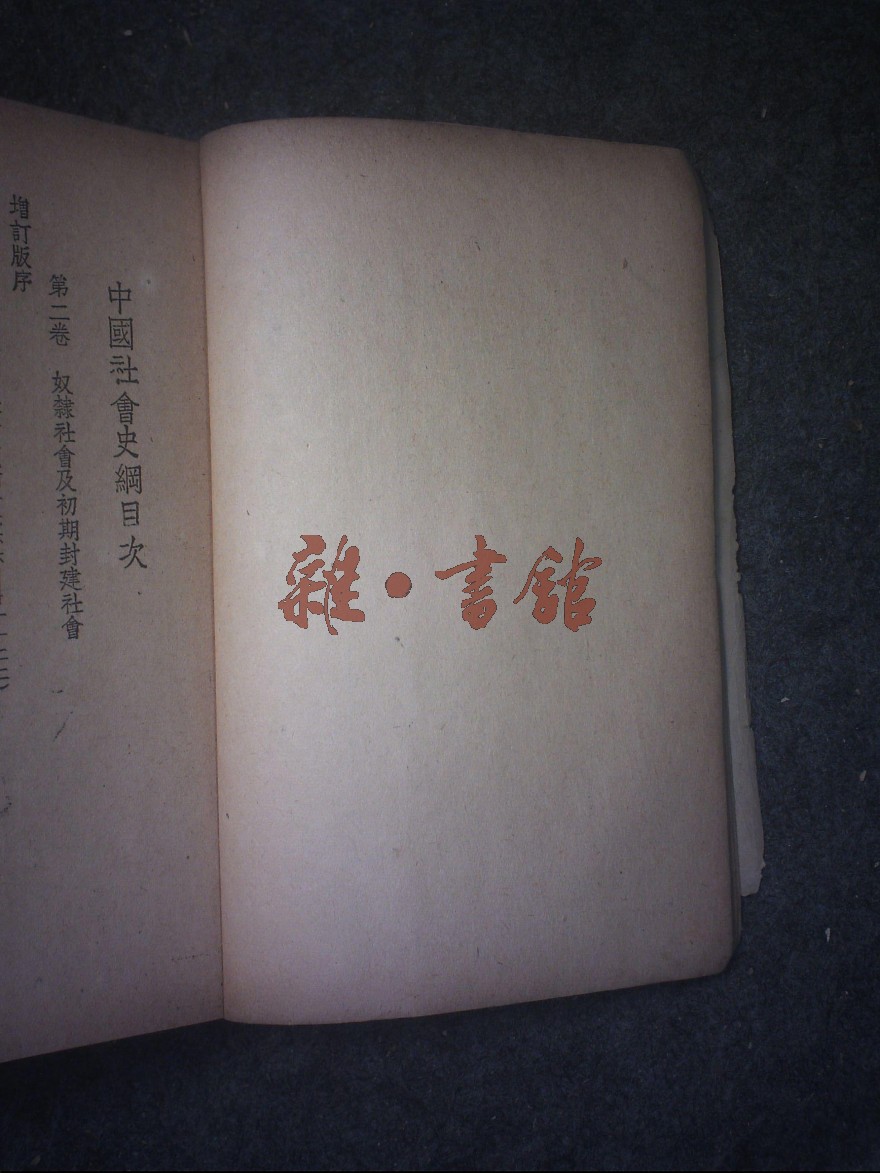 中國社會史綱目次
第二卷 奴隸社會及初期封建社會
增訂版序
雜·書館